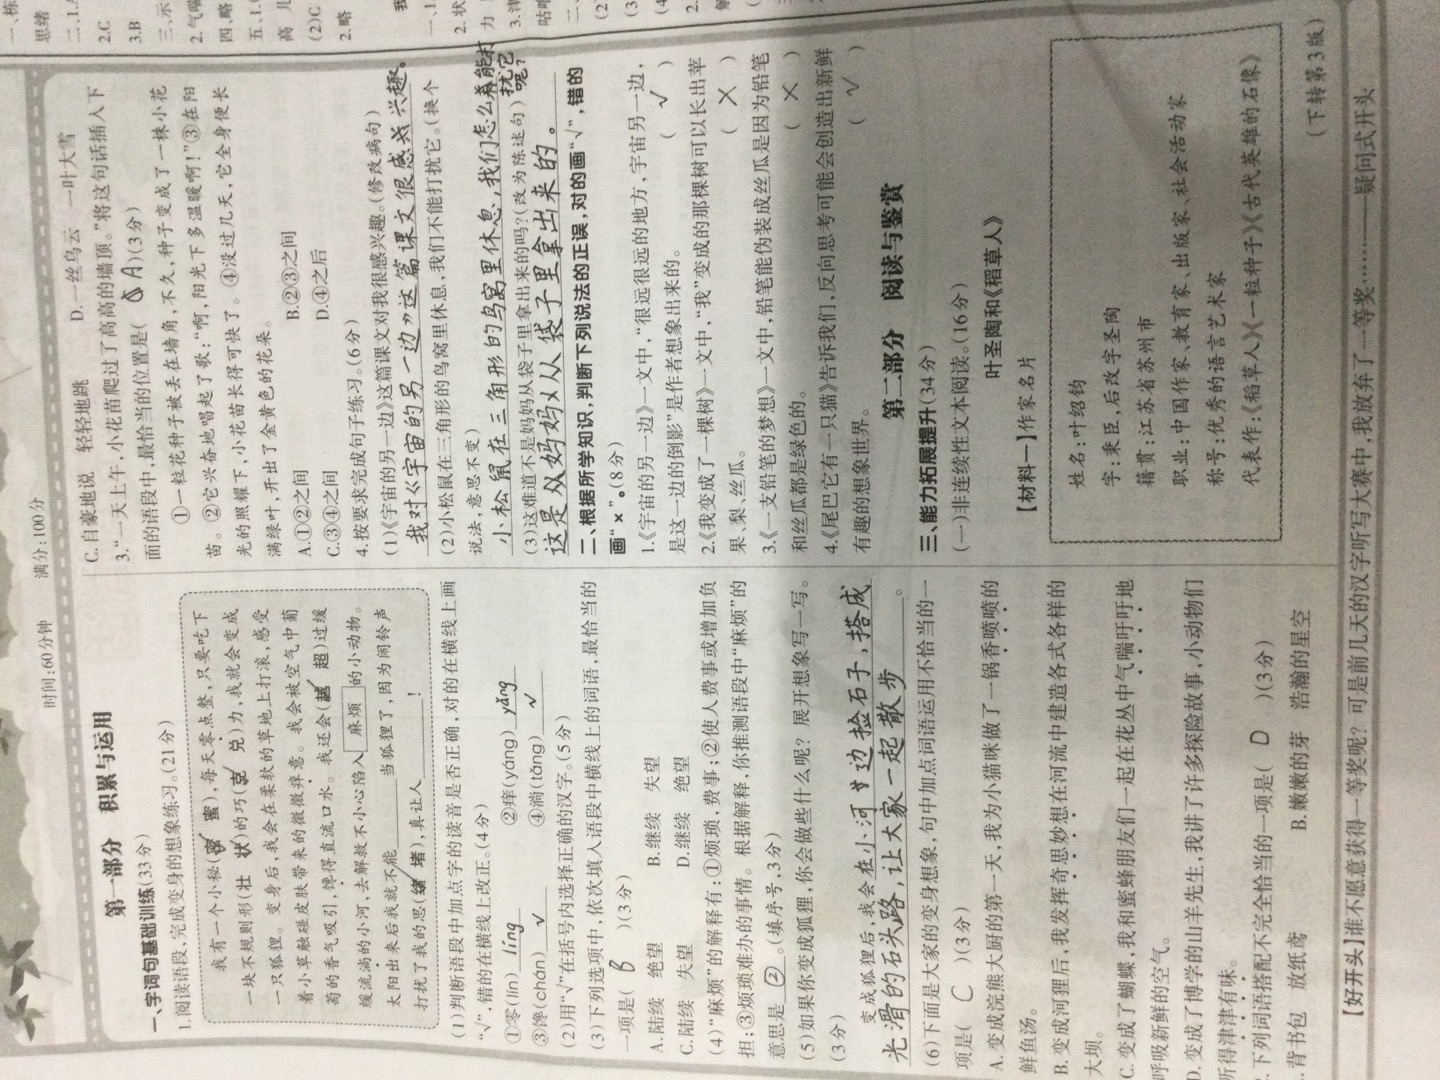 时间:60分钟 满分:100分
第一部分 积累与运用
一、字词句基础训练(33分)
1.阅读语段,完成变身的想象练习。(21分)
我有一个小秘(密 蜜),每天零点整,只要吃下
一块不规则形(壮 状)的巧(克 兑)力,我就会变成
一只狐狸。变身后,我会在柔软的草地上打滚,感受
着小草触碰皮肤带来的微微痒意。我会被空气中葡
萄的香气吸引,馋得直流口水。我还会(越 超)过缓
缓流淌的小河,去解救不小心陷入 麻烦 的小动物。
太阳出来后我就不能 当狐狸了,因为闹铃声
打扰了我的思(绪 者),真让人 !
(1)判断语段中加点字的读音是否正确,对的在横线上画
“√”,错的在横线上改正。(4分)
①零(lín) líng ②痒(yáng) yǎng
③馋(chán) √ ④淌(tǎng) √
(2)用“√”在括号内选择正确的汉字。(5分)
(3)下列选项中,依次填入语段中横线上的词语,最恰当的
一项是( B )(3分)
A.陆续 绝望 B.继续 失望
C.陆续 失望 D.继续 绝望
(4)“麻烦”的解释有:①烦琐,费事;②使人费事或增加负
担;③烦琐难办的事情。根据解释,你推测语段中“麻烦”的
意思是 ② 。(填序号,3分)
(5)如果你变成狐狸,你会做些什么呢?展开想象写一写。
(3分)
变成狐狸后,我会在小河边捡石子,搭成
光滑的石头路,让大家一起散步。
(6)下面是大家的变身想象,句中加点词语运用不恰当的一
项是( C )(3分)
A.变成浣熊大厨的第一天,我为小猫咪做了一锅香喷喷的
鲜鱼汤。
B.变成河狸后,我发挥奇思妙想在河流中建造各式各样的
大坝。
C.变成了蝴蝶,我和蜜蜂朋友们一起在花丛中气喘吁吁地
呼吸新鲜的空气。
D.变成了博学的山羊先生,我讲了许多探险故事,小动物们
听得津津有味。
.下列词语搭配不完全恰当的一项是( D )(3分)
.背书包 放纸鸢 B.嫩嫩的芽 浩瀚的星空
C.自豪地说 轻轻地跳 D.一丝乌云 一叶大雪
3.“一天上午,小花苗爬过了高高的墙顶。”将这句话插入下
面的语段中,最恰当的位置是( A )(3分)
①一粒花种子被丢在墙角,不久,种子变成了一株小花
苗。②它兴奋地唱起了歌:“啊,阳光下多温暖啊!”③在阳
光的照耀下,小花苗长得可快了。④没过几天,它全身便长
满绿叶,开出了金黄色的花朵。
A.①②之间 B.②③之间
C.③④之间 D.④之后
4.按要求完成句子练习。(6分)
(1)《宇宙的另一边》这篇课文对我很感兴趣。(修改病句)
我对《宇宙的另一边》这篇课文很感兴趣。
(2)小松鼠在三角形的鸟窝里休息,我们不能打扰它。(换个
说法,意思不变)
小松鼠在三角形的鸟窝里休息,我们怎么能打扰它呢?
(3)这难道不是妈妈从袋子里拿出来的吗?(改为陈述句)
这是妈妈从袋子里拿出来的。
二、根据所学知识,判断下列说法的正误,对的画“√”,错的
画“×”。(8分)
1.《宇宙的另一边》一文中,“很远很远的地方,宇宙另一边,
是这一边的倒影”是作者想象出来的。 ( √ )
2.《我变成了一棵树》一文中,“我”变成的那棵树可以长出苹
果、梨、丝瓜。 ( × )
3.《一支铅笔的梦想》一文中,铅笔能伪装成丝瓜是因为铅笔
和丝瓜都是绿色的。 ( × )
4.《尾巴它有一只猫》告诉我们,反向思考可能会创造出新鲜
有趣的想象世界。 ( √ )
第二部分 阅读与鉴赏
三、能力拓展提升(34分)
(一)非连续性文本阅读。(16分)
叶圣陶和《稻草人》
【材料一】作家名片
姓名:叶绍钧
字:秉臣,后改字圣陶
籍贯:江苏省苏州市
职业:中国作家、教育家、出版家、社会活动家
称号:优秀的语言艺术家
代表作:《稻草人》《一粒种子》《古代英雄的石像》
(下转第3版)
【好开头】谁不愿意获得一等奖呢?可是前几天的汉字听写大赛中,我放弃了一等奖……——疑问式开头